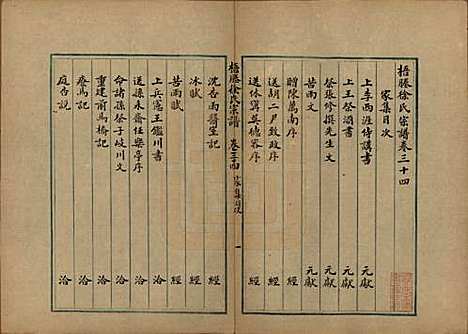 梧塍徐氏宗譜卷三十四
家集目次
上李西涯侍講書 元獻
上王祭酒書 元獻
祭張修撰先生文 元獻
苦雨文 元獻
贈陳萬南序 經
送胡二尹致政序 經
送休寧吳德容序 經
梧塍徐氏宗譜 卷三十四 家集目次 一
沈杏雨醫室記 經
冰賦 經
苦雨賦 經
上兵憲王鑑川書 洽
送孫永齋任樂亭序 洽
命諸孫祭子岐川文 洽
重建前馬橋記 洽
療馬記 洽
庭告說 洽